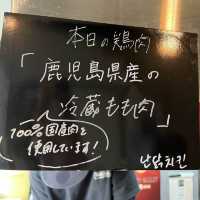 本日の鶏肉
「鹿児島県産の
冷蔵もも肉」
100%国産肉を
使用しています!
난닭치킨